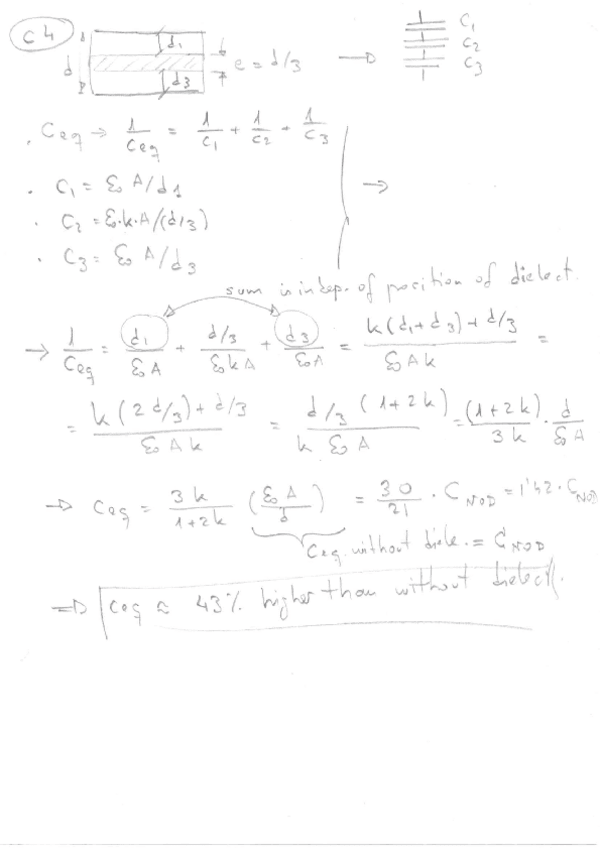 C4
d d₁ d₃ e = d/3 → C₁ C₂ C₃
. Ceq → 1/Ceq = 1/C₁ + 1/C₂ + 1/C₃
. C₁ = ε₀ A/d₁
. C₂ = ε₀·k·A/(d/3)
. C₃ = ε₀ A/d₃
→
sum is indep. of position of dielect.
→ 1/Ceq = d₁/ε₀A + d/3/ε₀kA + d₃/ε₀A = k(d₁+d₃)+d/3/ε₀Ak =
= k(2d/3)+d/3/ε₀Ak = d/3 (1+2k)/k ε₀ A = (1+2k)/3k · d/ε₀A
→ Ceq = 3k/1+2k (ε₀A/d) = 30/21 · C NOD = 1'42 · C NOD
Ceq without diele. = C NOD
⇒ Ceq ≈ 43% higher than without dielect.